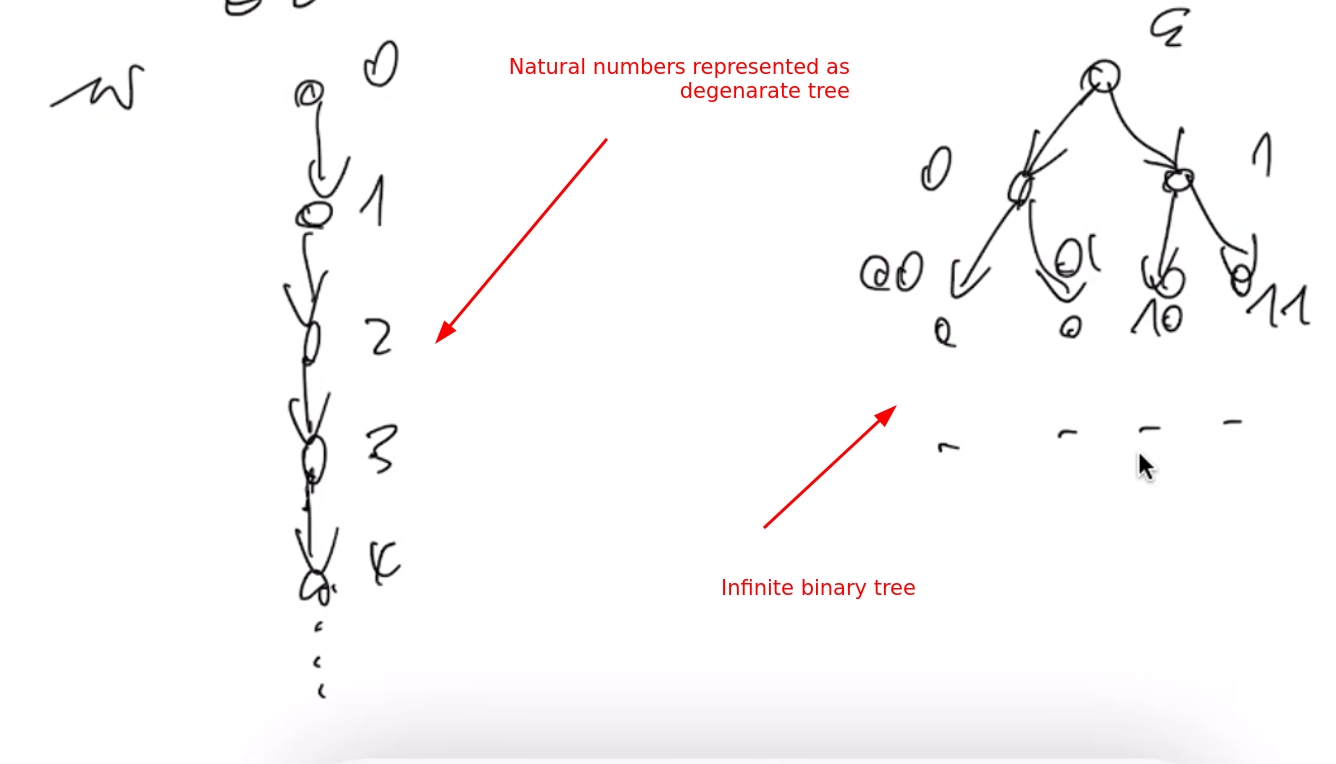 ε
0
Natural numbers represented as
degenarate tree
N
0
1
1
00
01
10
11
2
3
4
Infinite binary tree